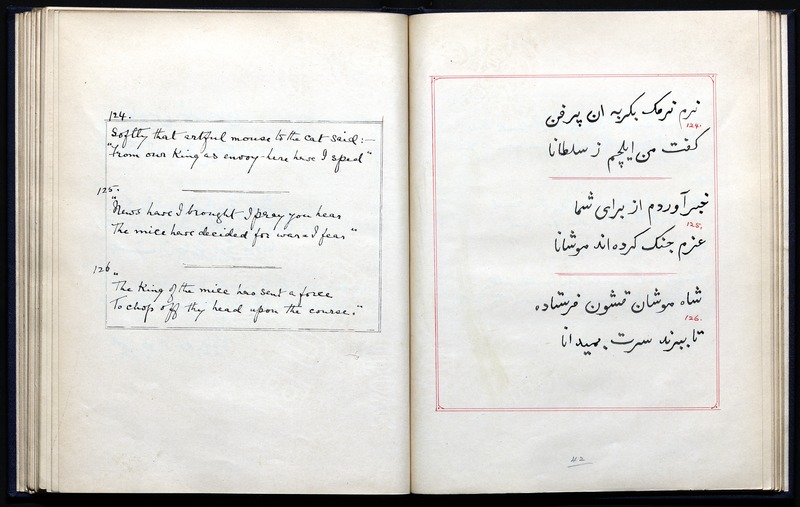 124.
Softly that artful mouse to the cat said:—
"From our King as envoy here have I sped"
125.
"News have I brought I pray you hear
The mice have decided for war I fear"
126
"The King of the mice has sent a force
To chop off thy head upon the course."
نرم نرمک بگربه ان پرفن
124.
گفت من ایلچیم ز سلطانا
خبر آوردم از برای شما
125.
عزم جنگ کرده اند موشانا
شاه موشان قشون فرستاده
126.
تا ببرند سرت بمیدانا
42